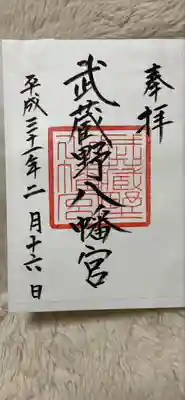 奉拝
武蔵野八幡宮
平成三十一年二月十六日